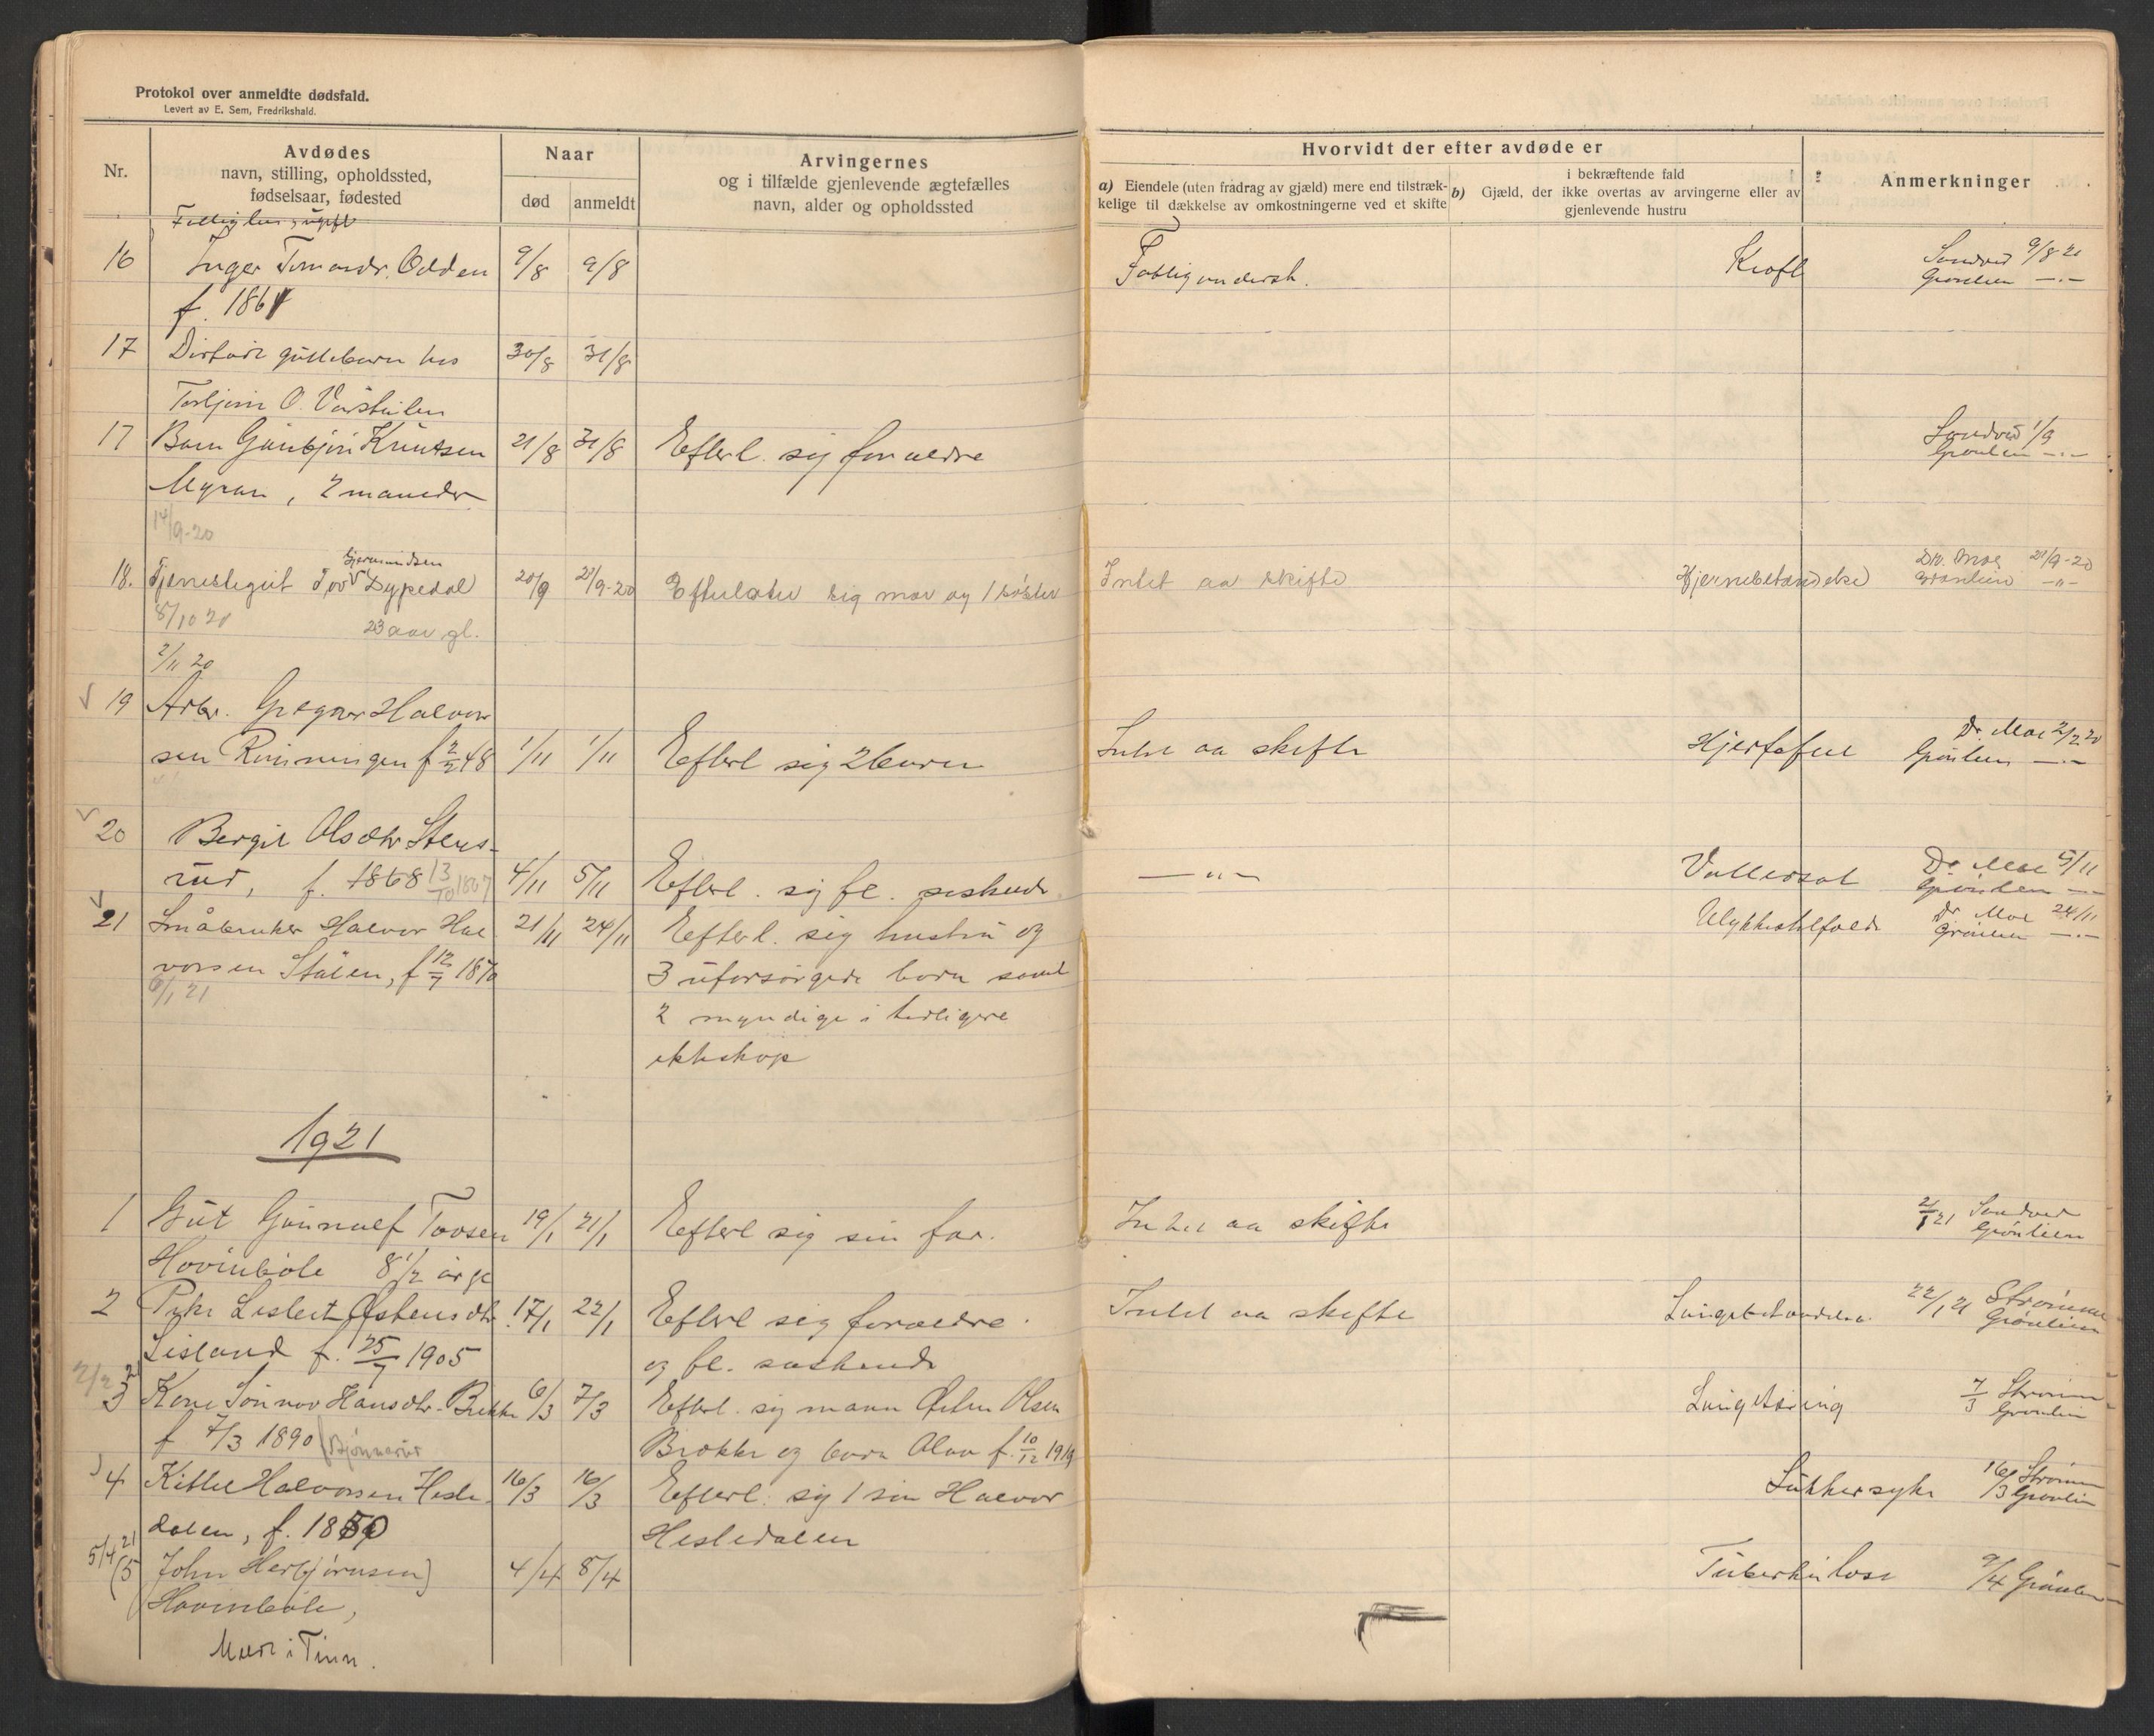 Protokol over anmeldte dødsfald.
Levert av E. Sem, Fredrikshald.
Nr.
Avdødes
navn, stilling, opholdssted,
fødselsaar, fødested
Naar
død
anmeldt
Arvingernes
og i tilfælde gjenlevende ægtefælles
navn, alder og opholdssted
Hvorvidt der efter avdøde er
a) Eiendele (uten fradrag av gjæld) mere end tilstræk-
kelige til dækkelse av omkostningerne ved et skifte
i bekræftende fald
b) Gjæld, der ikke overtas av arvingerne eller av
gjenlevende hustru
Anmerkninger
Fattiglem, ugift
16 Inger Tomasdr. Odden 9/8 9/8 Fattigunderst. Kræft Sandvid 9/8 20
f. 1861 Grønlien —.—
17 Dødfødt guttebarn hos 30/8 31/8
Torbjørn O. Vårstulen
17 Barn Gunbjør Knutsen 21/8 31/8 Efterl. sig forældre Sandvid 1/9
Myran, 2 maneder Grønlien —.—
14/9-20
18. Tjenestegut Tov Gjermundsen Dypedal 20/9 21/9-20 Efterlater sig mor og 1 søster Intet aa skifte Hjernebetændelse Dr. Moe 21/9-20
5/10 20 23 aar gl. Grønlien —"—
2/11 20
19 Arbr. Gregar Halvor-
sen Rønningen f 2/2 48 1/11 1/11 Efterl sig 2 barn Intet aa skifte Hjertefeil Dr. Moe 2/2 20
Grønlien —.—
20 Bergit Olsdtr Stens-
rud, f. 1868 13/10 1867 4/11 5/11 Efterl. sig fl. søskende — " — Vattersot Dr Moe 5/11
Grønlien —.—
21 Småbruker Halvor Hal 21/11 24/11 Efterl. sig hustru og Ulykkestilfælde Dr Moe 24/11
vorsen Stålen, f 12/7 1870 3 uforsørgede barn samt Grønlien —.—
6/1 21 2 myndige i tidligere
ekteskap
1921
1 Gut Gunnulf Tovsen 19/1 21/1 Efterl sig sin far. Intet aa skifte 21/1 21 Sandvid
Hovinbøle 8 1/2 år gl Grønlien
2 Pike Lislett Østensdtr. 17/1 22/1 Efterl sig forældre Intet aa skifte Lungebetændelse 22/1 21 Strømme
Lisland f. 25/7 1905 og fl. søskende Grønlien
2/2 21
3 Kone Sønnov Hansdtr. Brekke 6/3 7/3 Efterl. sig mann Østen Olsen Lungetæring 7/3 Strømm
f 7/3 1890 (Bjønnerud Brække og barn Olav f. 10/12 1919 Grønlien
4 Kittel Halvorsen Hesle- 16/3 16/3 Efterl. sig 1 søn Halvor Sukkersyke 16/3 Strømm
dalen, f. 1850 Hesledalen Grønlien
5/4 21
(5 John Herbjørnsen) 4/4 8/4 Tuberkulose 9/4 Grønlien
Hovinbøle,
Meer i Tinn.